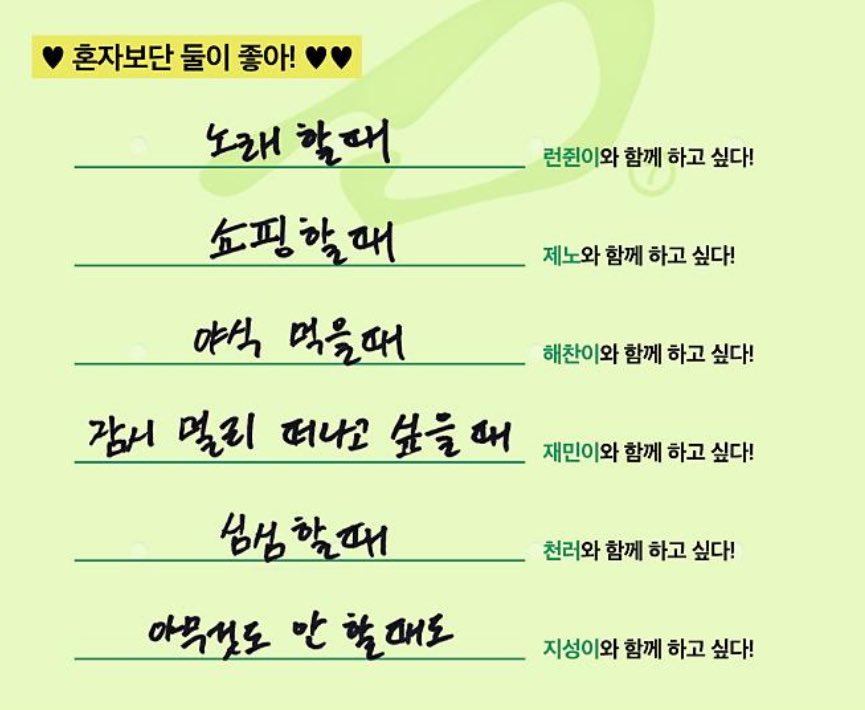 ♥ 혼자보단 둘이 좋아! ♥♥
노래 할때 런쥔이와 함께 하고 싶다!
쇼핑할때 제노와 함께 하고 싶다!
야식 먹을때 해찬이와 함께 하고 싶다!
잠시 멀리 떠나고 싶을때 재민이와 함께 하고 싶다!
심심할때 천러와 함께 하고 싶다!
아무것도 안 할때도 지성이와 함께 하고 싶다!